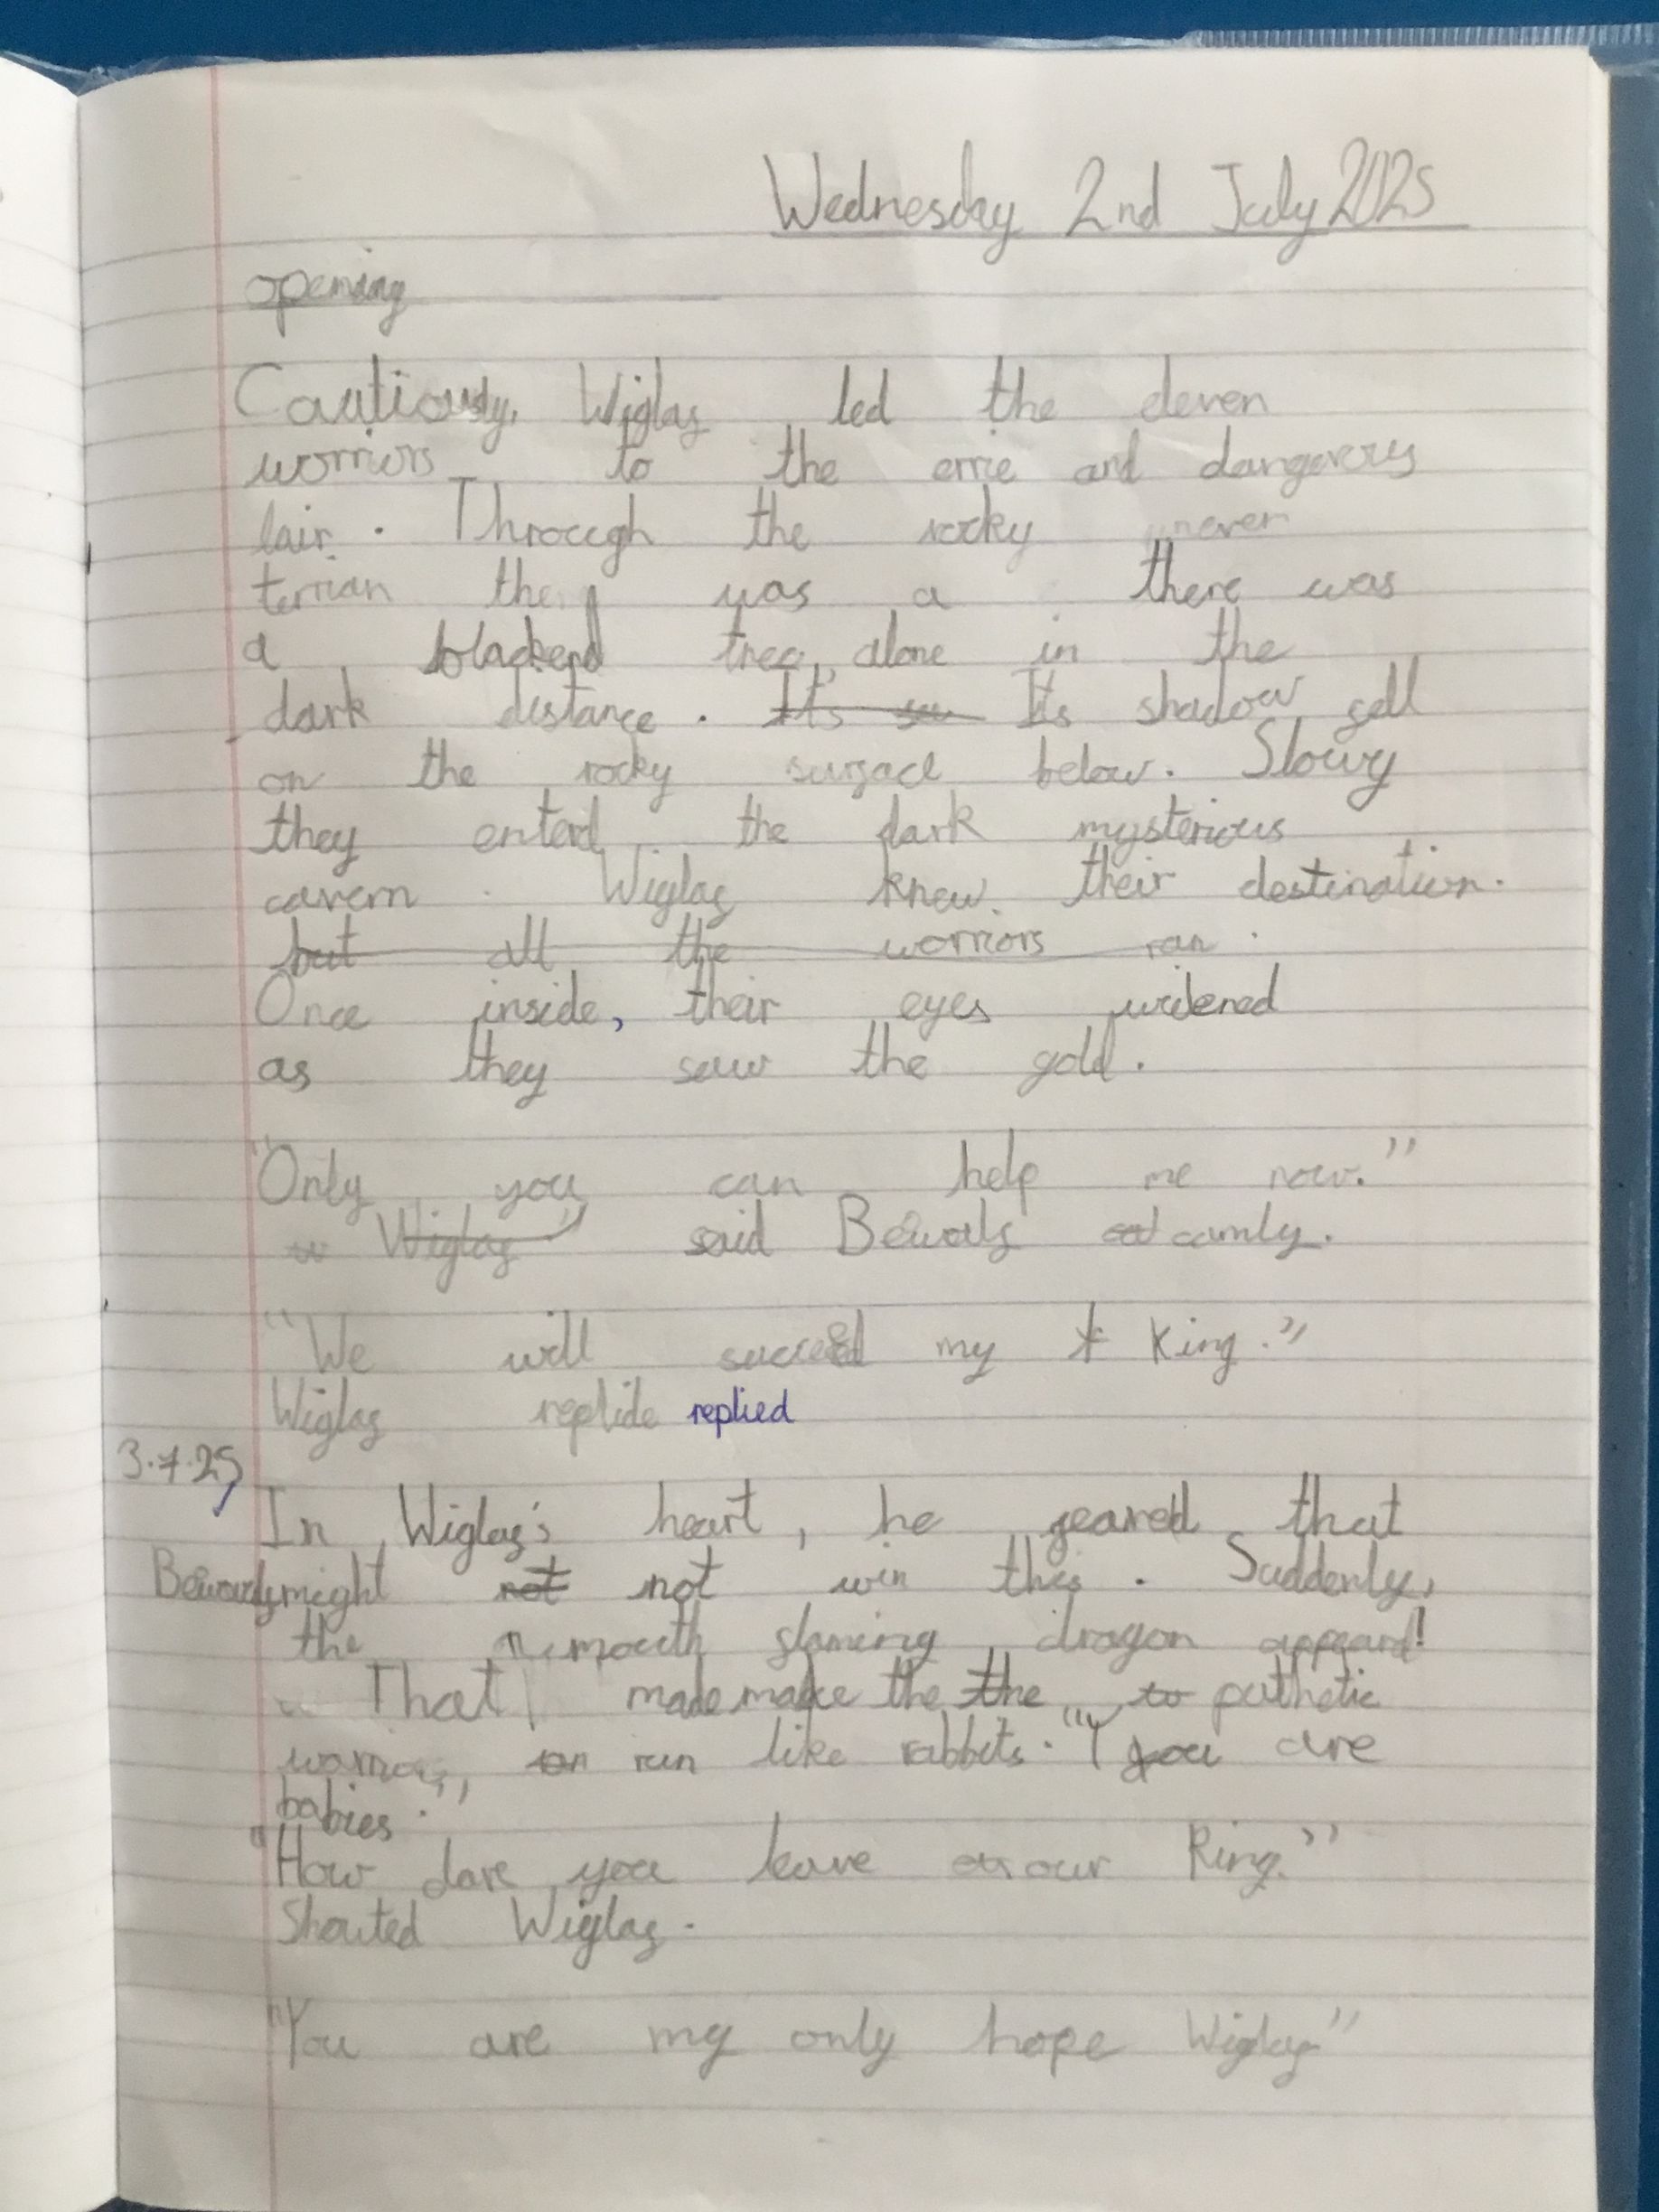 Wednesday 2nd July 2025
opening
Cautiously, Wiglaf led the eleven
worriors to the errie and dangerous
lair. Through the rocky never
terrian the was a there was
a blackend tree, alone in the
dark distance. It's Its shadow fell
on the rocky surface below. Slowy
they enterd the dark mysterious
cavern. Wiglaf knew their destination.
but all the worriors ran.
Once inside, their eyes widened
as they saw the gold.
"Only you can help me now."
Wiglaf said Bewolf camly.
"We will succeed my King."
Wiglaf replide replied
3.7.25
In Wiglaf's heart, he feared that
Bewolf might not not win this. Suddenly,
the mouth flaming dragon appeard!
That made make the the to pathetic
worriors, run like rabbits. "You are
babies."
"How dare you leave our King."
Shouted Wiglaf.
"You are my only hope Wiglaf"